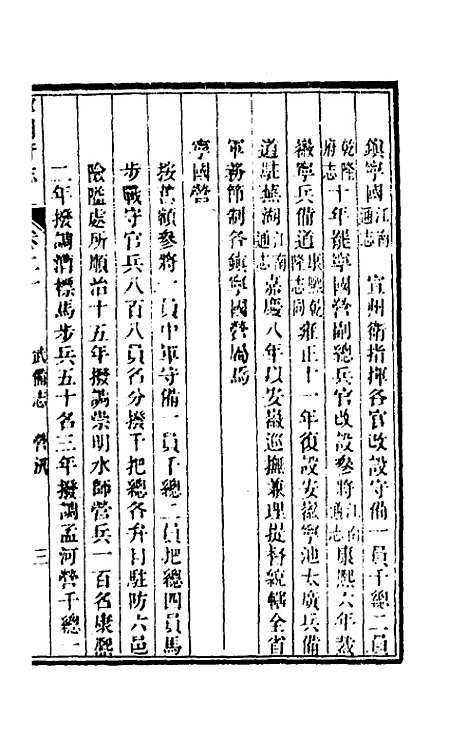 鎮寧國江南通志 宣州衛指揮各官改設守備一員千總二員
乾隆府志十年罷寧國營副總兵官改設參將江南通志康熙六年裁
徽寧兵備道康熙乾隆志同雍正十一年復設安徽寧池太廣兵備
道駐蕪湖江南通志嘉慶八年以安徽巡撫兼理提督統轄全省
軍務節制各鎮寧國營屬焉
寧國營
按舊額參將一員中軍守備一員千總二員把總四員馬
步戰守官兵八百八員名分撥千把總各弁目駐防六邑
險隘處所順治十五年撥調崇明水師營兵一百名康熙
二年撥調漕標馬步兵五十名三年撥調孟河營千總一
府志 卷二十 武備志 營汛 三